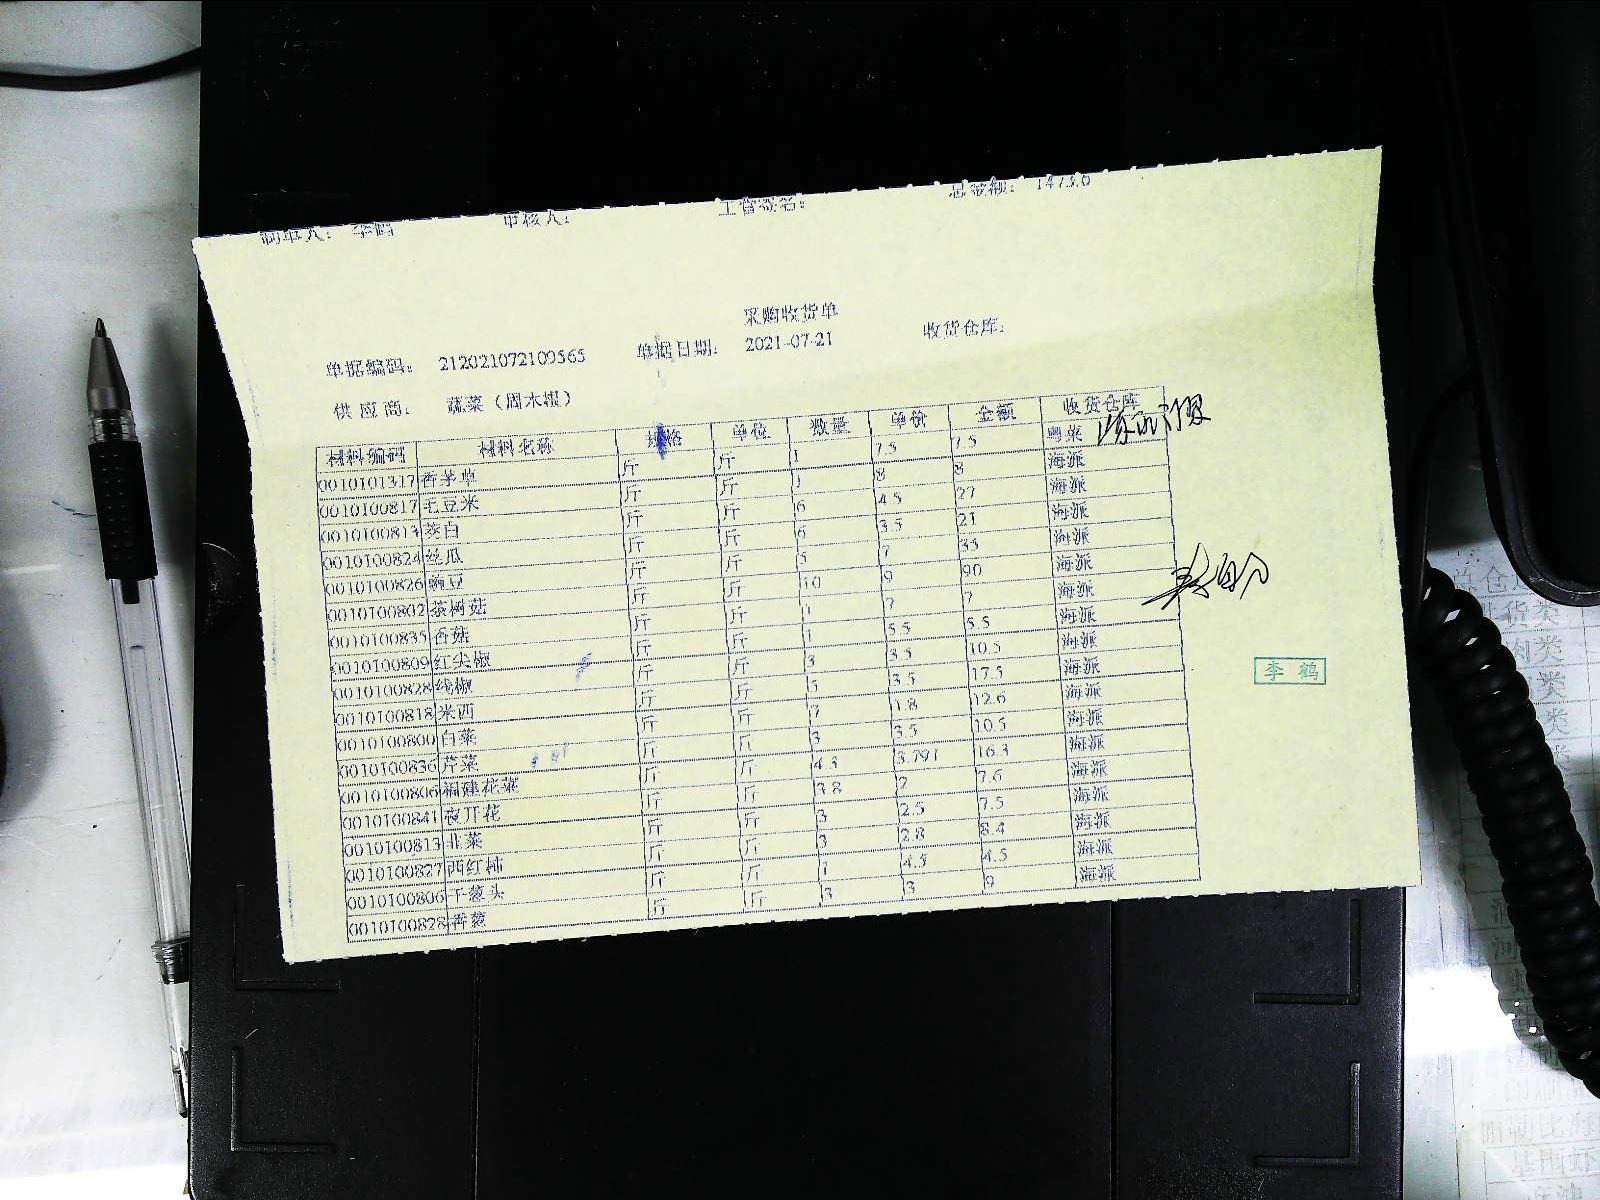 制单人： 李鹤 审核人： 主管签名： 总金额： 1473.6
采购收货单
单据编码： 212021072109565 单据日期： 2021-07-21 收货仓库：
供应商： 蔬菜（周木根）
材料编码 材料名称 规格 单位 数量 单价 金额 收货仓库
0010101317 香茅草 斤 斤 1 7.5 7.5 粤菜
0010100817 毛豆米 斤 斤 1 8 8 海派
0010100813 茭白 斤 斤 6 4.5 27 海派
0010100824 丝瓜 斤 斤 6 3.5 21 海派
0010100826 豌豆 斤 斤 5 7 35 海派
0010100802 茶树菇 斤 斤 10 9 90 海派
0010100835 香菇 斤 斤 1 7 7 海派
0010100809 红尖椒 斤 斤 1 5.5 5.5 海派
0010100828 线椒 斤 斤 3 3.5 10.5 海派
0010100818 米西 斤 斤 5 3.5 17.5 海派
0010100800 白菜 斤 斤 7 1.8 12.6 海派
0010100836 芹菜 斤 斤 3 3.5 10.5 海派
0010100806 福建花菜 斤 斤 4.3 3.791 16.3 海派
0010100841 夜开花 斤 斤 3.8 2 7.6 海派
0010100813 韭菜 斤 斤 3 2.5 7.5 海派
0010100827 西红柿 斤 斤 3 2.8 8.4 海派
0010100806 干葱头 斤 斤 1 4.5 4.5 海派
0010100828 香葱 斤 斤 3 3 9 海派
李鹤